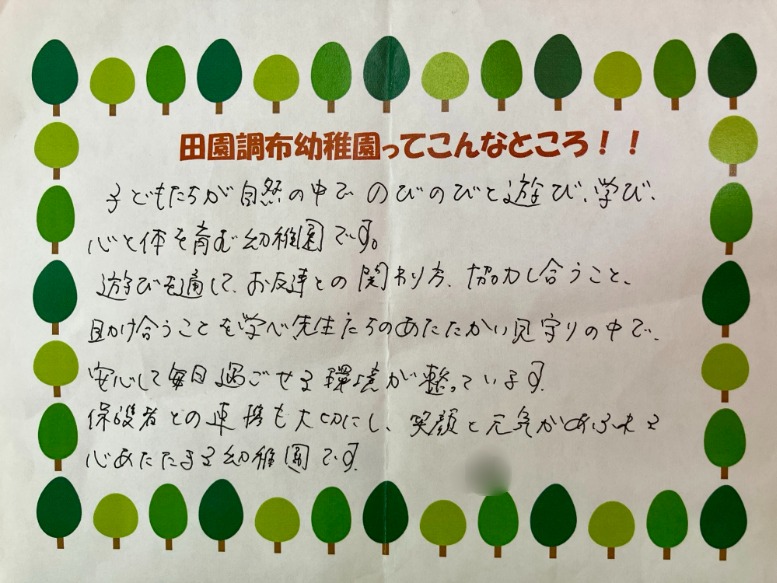 田園調布幼稚園ってこんなところ！！
子どもたちが自然の中でのびのびと遊び、学び、
心と体を育む幼稚園です。
遊びを通して、お友達との関わり方、協力し合うこと、
助け合うことを学べ先生たちのあたたかい見守りの中で、
安心して毎日過ごせる環境が整っています。
保護者との連携も大切にし、笑顔と元気があふれる
心あたたまる幼稚園です。